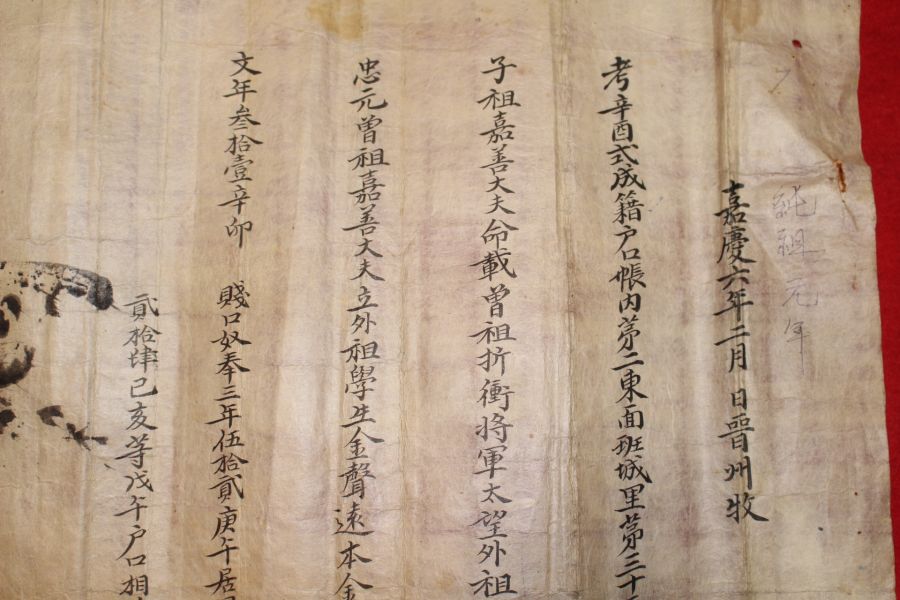 純祖元年
嘉慶六年二月 日晉州牧
考辛酉式成籍户口帳內苐二東面班城里苐三十
子祖嘉善大夫命載曾祖折衝將軍太望外祖
忠元曾祖嘉善大夫立外祖學生金聲遠本金
文年叁拾壹辛卯 賤口奴奉三年伍拾貳庚午居
貳拾肆己亥等戊午户口相